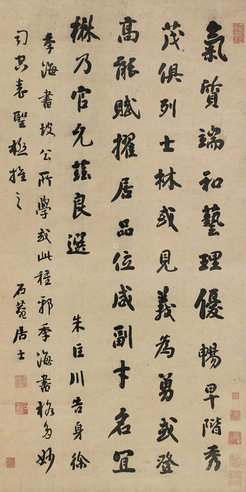 氣質端和藝理優暢早階秀
茂俱列士林或見義為勇或登
高能賦擢居品位咸副才名宜
楙乃官允茲良選 朱巨川告身徐
季海書坡公所學或此種耶季海書多妙
司空表聖極推之 石菴居士